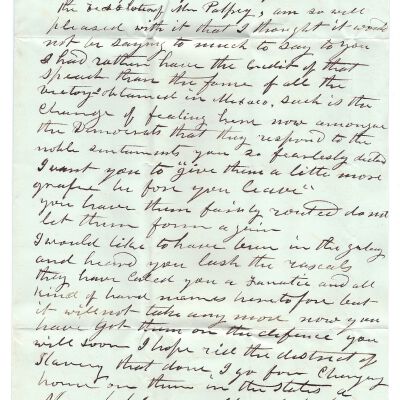 the Resolution of Mr Palfrey, am so well
pleased with it that I thought it would
not be saying to much to say to you
I had rather have the credit of that
Speach than the fame of all the
victorys obtained in Mexico, such is the
Change of feeling here now amongue
the Democrats that they respond to the
noble sentaments you so fearlessly dicted
I want you to "give them a little more
grape be fore you leave"
you have them fairly routed do not
let them form again
I would like to have been in the galery
and heard you lash the rascals
they have called you a Fanatic and all
kind of hard names heretofore but
it will not take any more now you
have Got them on the defence you
will soon I hope rid the district of
Slavery that done, I go for Charging
home on them in the States